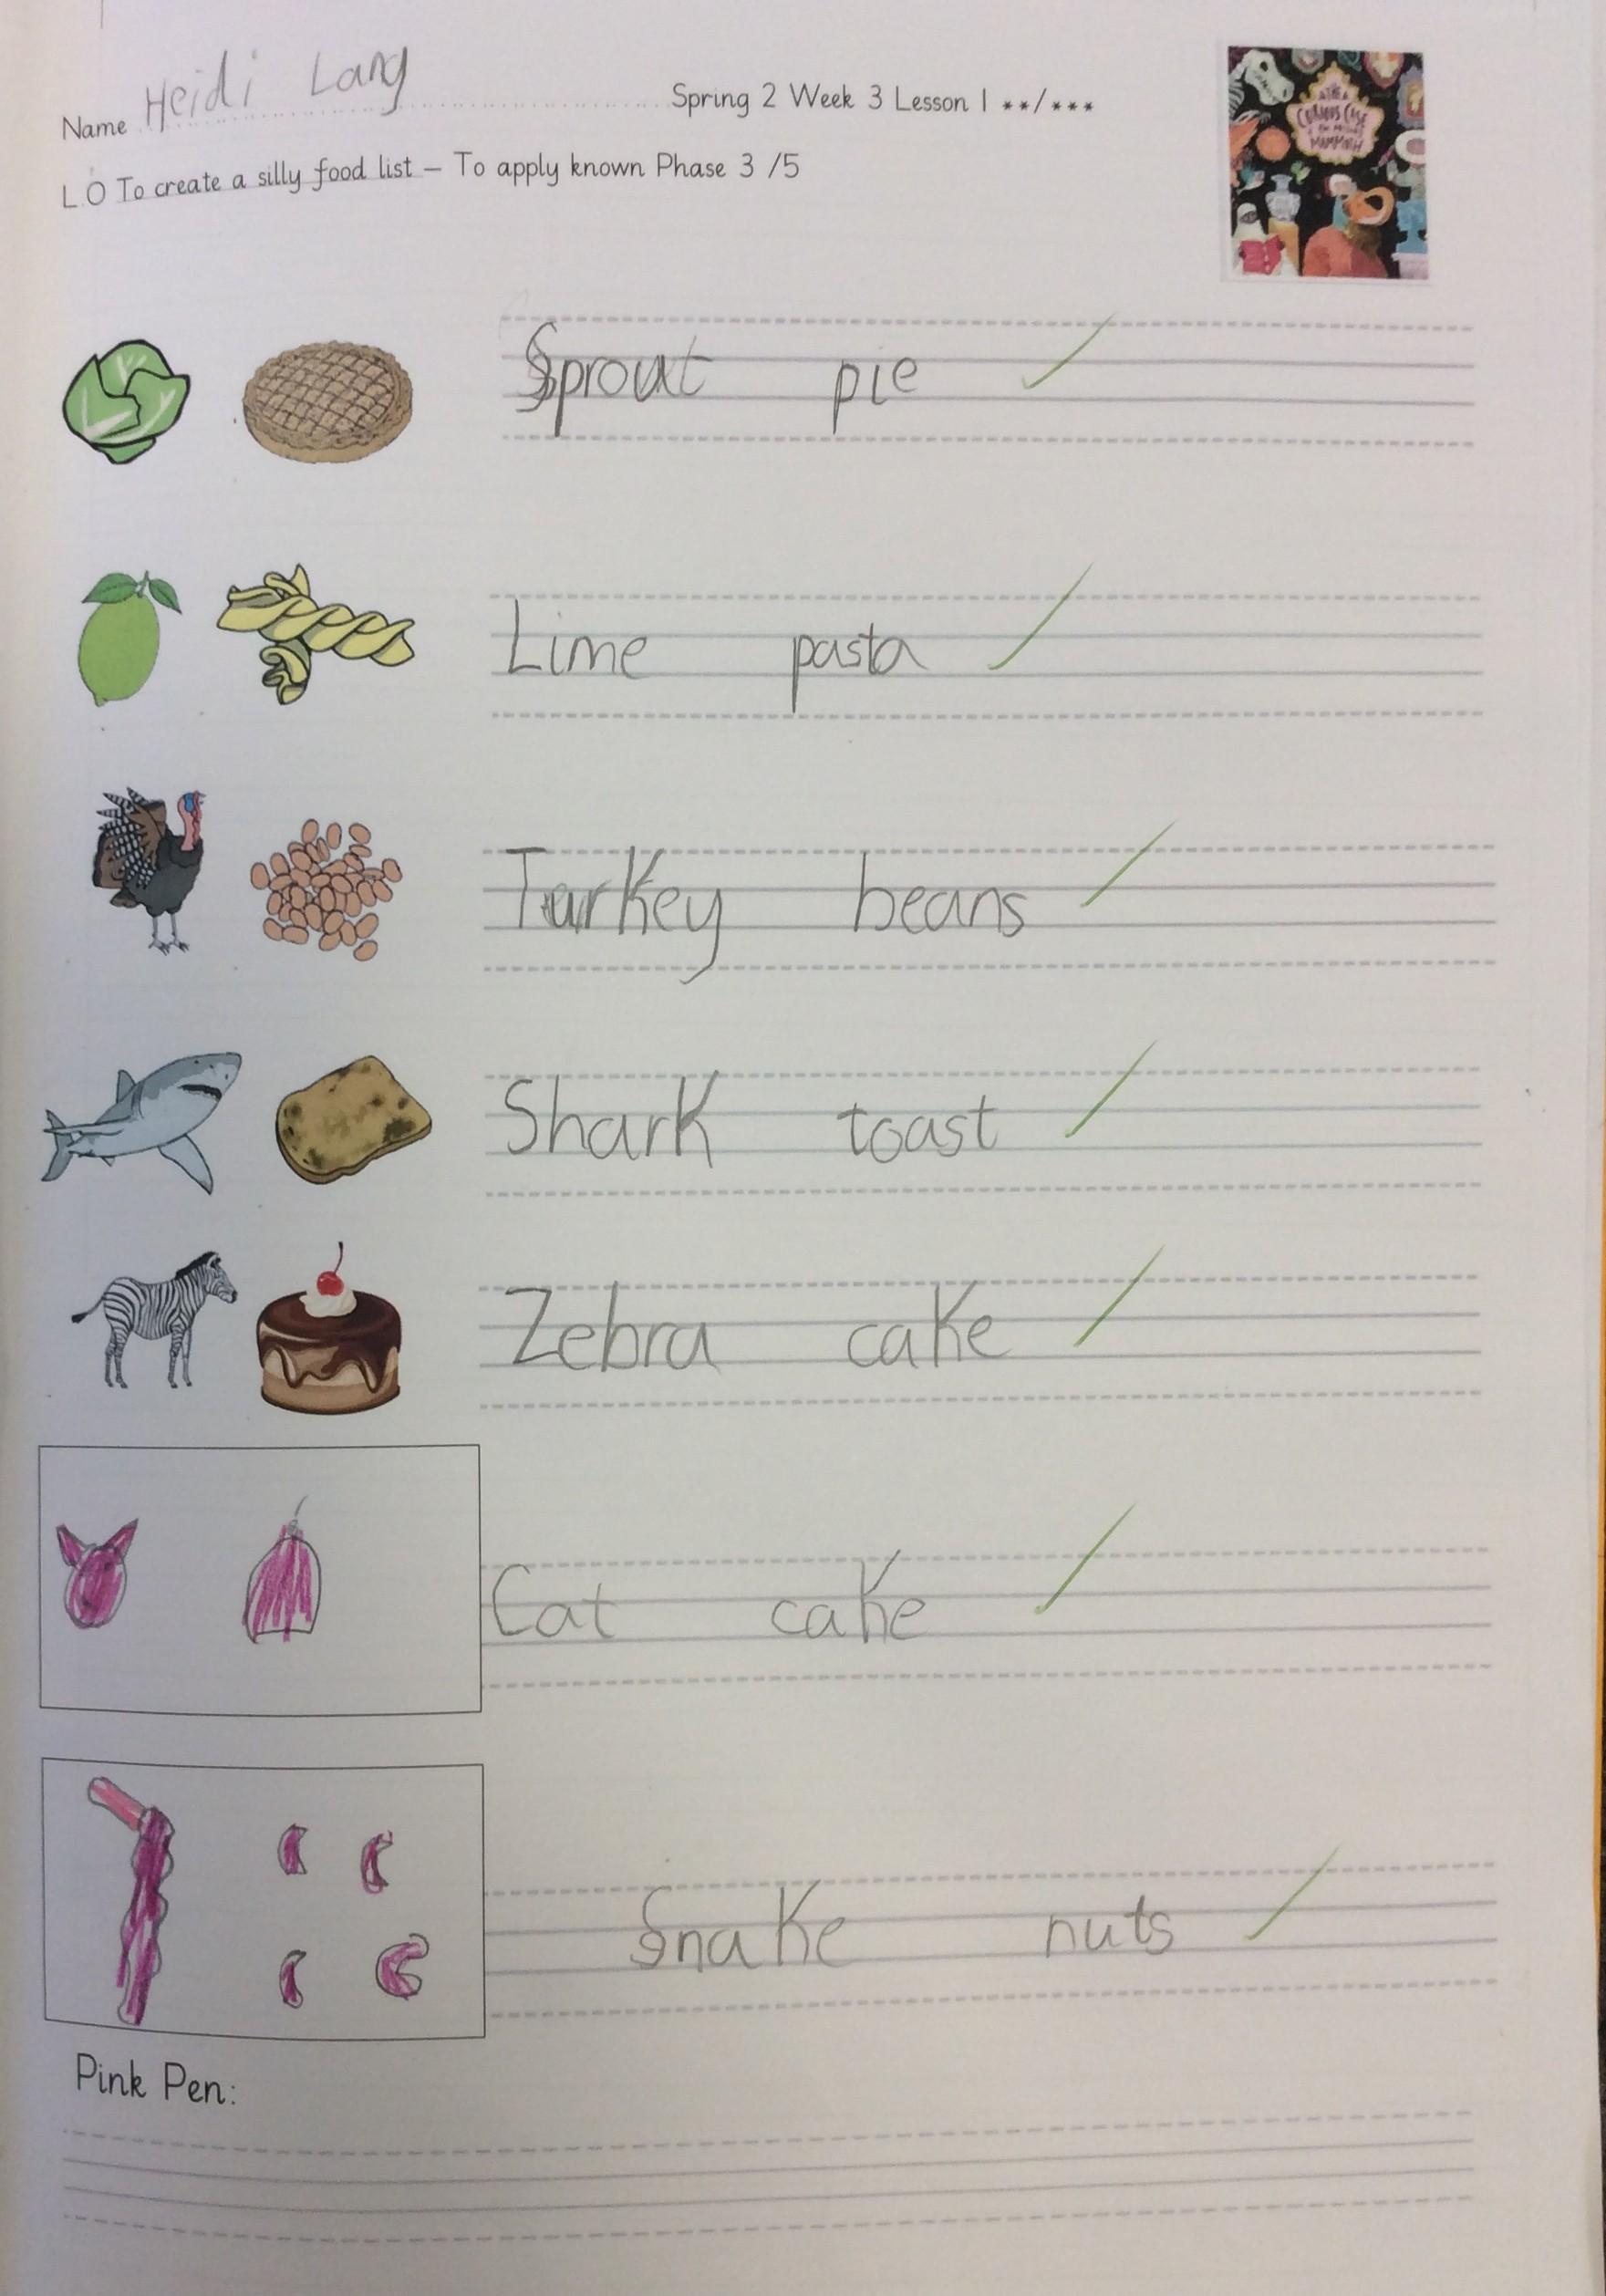 Name Heidi Lang Spring 2 Week 3 Lesson 1 **/***
L.O To create a silly food list – To apply known Phase 3 /5
THE CURIOUS CASE OF THE MISSING MAMMOTH
Sprout pie
Lime pasta
Turkey beans
Shark toast
Zebra cake
Cat cake
Snake nuts
Pink Pen: